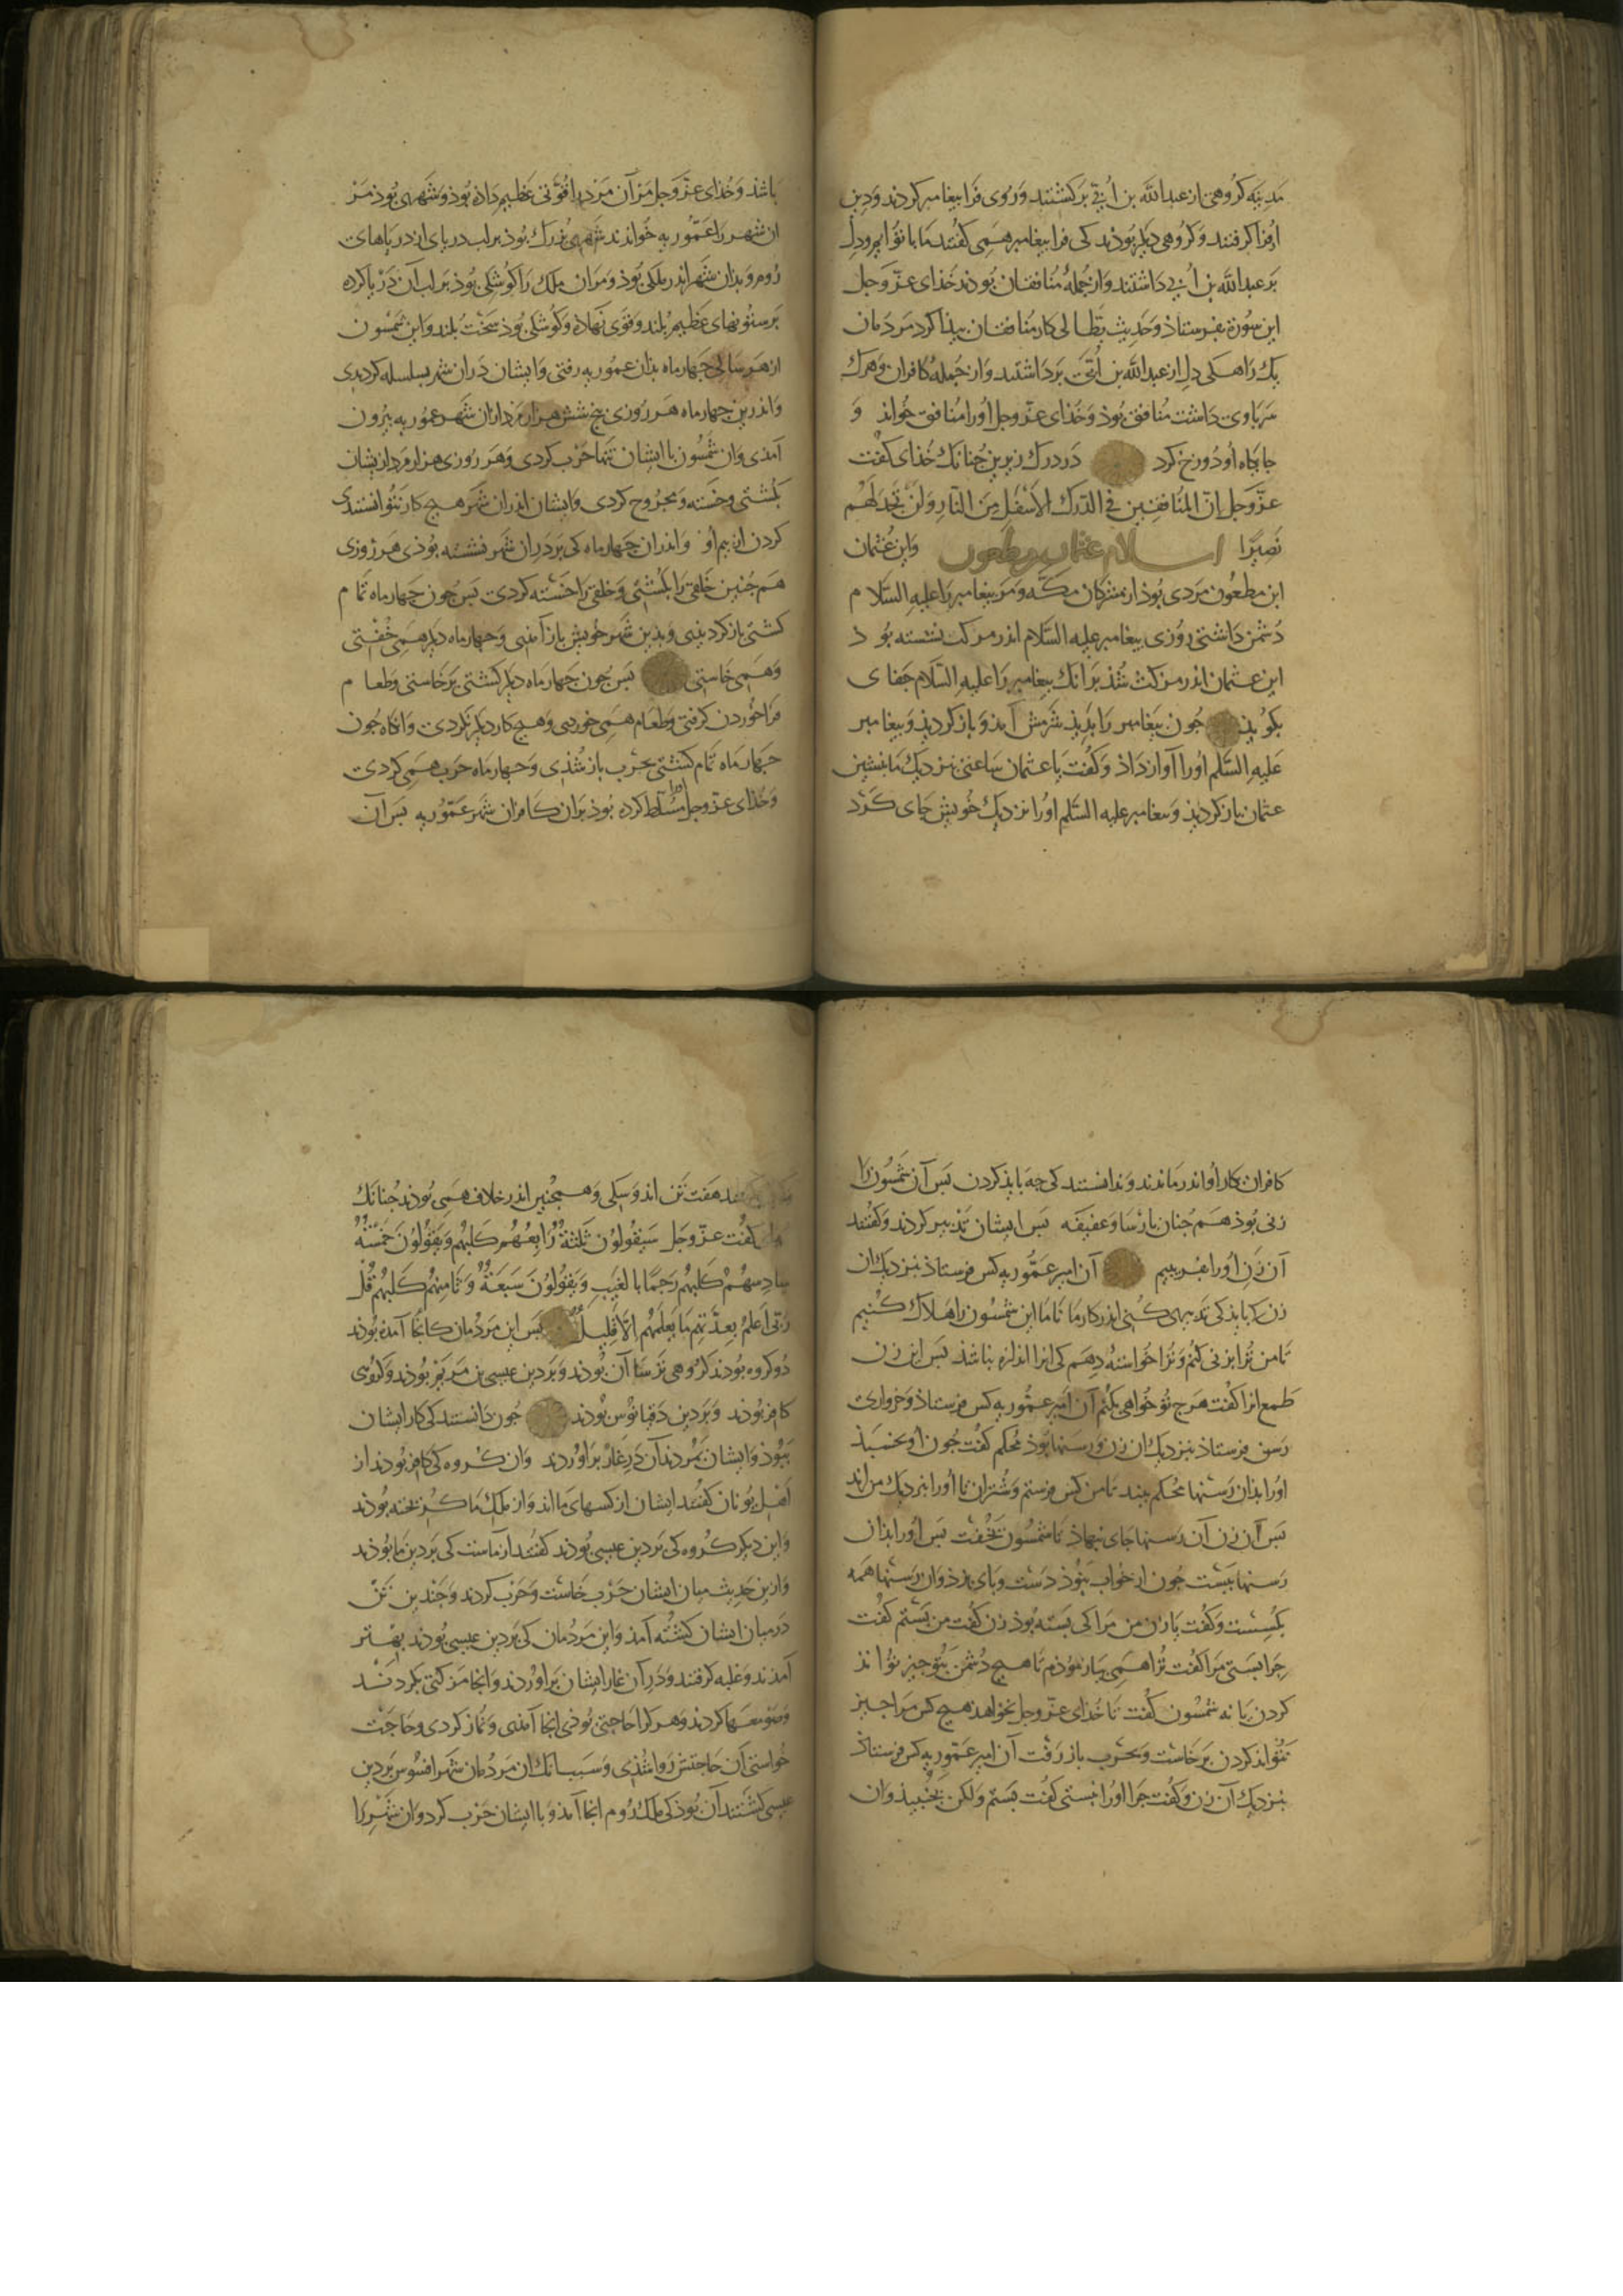 مدینه کروهی از عبدالله بن اُبَیّ برکشتند و روی فرا بیغامبر کردند و دین
او فرا کرفتند و کروهی دیکر بوذند کی فرا بیغامبر همی کفتند ما با توایم و دل
بر عبدالله بن اُبَیّ داشتند و از جملهٔ منافقان بوذند خذای عزّ و جل
این سورة بفرستاذ و حدیث کار منافقان بیذا کرد مردمان
یک راه کی دل از عبدالله بن اُبَیّ برداشتند و از جملهٔ کافران و هرک
سر با وی داشت منافق بوذ و خذای عزّ و جل او را منافق خواند و
جایکاه او دوزخ کرد در درک زیرین جنانک خذای کفت
عزّ و جل اِنّ المُنَافِقِینَ فی الدَّرَکِ الاَسْفَلِ مِنَ النَّارِ وَلَنْ تَجِدَ لَهُم
نَصِیرًا اسلام عثمان بن مطعون و این عثمان
ابن مطعون مردی بوذ از مشرکان مکّه و مر بیغامبر را علیه السّلام
دشمن داشتی روزی بیغامبر علیه السّلام اندر مزکت نشسته بوذ
این عثمان اندر مزکت شذ بر آنک بیغامبر را علیه السّلام جفای
بکویذ جون بیغامبر را بدیذ شرمش آمذ و باز کردیذ و بیغامبر
علیه السّلم او را آواز داذ و کفت یا عثمان ساعتی نزدیک ما بنشین
عثمان باز کردیذ و بیغامبر علیه السّلم او را نزدیک خویش جای کرد
باشذ و خذای عزّ و جل مر آن مرد را قوّتی عظیم داذه بوذ و شهری بوذ مر
آن شهر را عمّوریه خواندند شهری بزرک بوذ بر لب دریای از دریاهای
روم و بذان شهر اندر ملکی بوذ و مر آن ملک را کوشکی بوذ بر لب آن دریا کرده
بر ستونهای عظیم بلند و قوی نهاذه و کوشکی بوذ سخت بلند و این شمسون
از هر سالی جهار ماه بذان عموریه رفتی و ایشان در آن شهر بسلسله کردی
و اندرین جهار ماه هر روزی بنج شش هزار مرد از آن شهر عموریه بیرون
آمذی و آن شمسون با ایشان تنها حرب کردی و هر روزی هزار مرد از یشان
بکشتی و خسته و مجروح کردی و ایشان اندر آن شهر هیج کار نتوانستندی
کردن از بیم او و اندر آن جهار ماه کی بر در آن شهر نشسته بوذی هر روزی
هم جنین خلقی را بکشتی و خلقی را خسته کردی بس جون جهار ماه تمام
کشتی باز کردیذی و بذین شهر خویش باز آمذی و جهار ماه دیکر همی خفتی
و همی خاستی بس جون جهار ماه دیکر کشتی برخاستی و طعام
فرا خوردن کرفتی و طعام همی خوردی و هیج کار دیکر نکردی و آنکاه جون
جهار ماه تمام کشتی بحرب باز شذی و جهار ماه حرب همی کردی
و خذای عزّ و جل او را مسلّط کرده بوذ بر آن کافران شهر عمّوریه بس آن
کافران بکار او اندر ماندند و ندانستند کی جه بایذ کردن بس آن شمسون را
زنی بوذ هم جنان بارسا و عفیفه بس ایشان تدبیر کردند و کفتند
آن زن او را بفریبیم آن امیر عمّوریه کس فرستاذ نزدیک آن
زن کی بایذ کی تدبیری کنی اندر کار ما تا ما این شمسون را هلاک کنیم
تا من ترا بزنی کنم و ترا خواسته دهم کی آنرا اندازه نباشذ بس این زن
طمع آنرا کفت هرج تو خواهی بکنم آن امیر عمّوریه کس فرستاذ و خرواری
رسن فرستاذ نزدیک آن زن و رسنها بوذ محکم کفت جون او بخسبذ
او را بذان رسنها محکم ببند تا من کس فرستم و شتران تا او را نزدیک من آرند
بس آن زن آن رسنها جای بنهاذ تا شمسون بخفت بس او را بذان
رسنها ببست جون از خواب ببوذ دست و بای بزد و آن رسنها همه
بکسست و کفت یا زن من مرا کی بسته بوذ زن کفت من بستم کفت
جرا بستی مرا کفت ترا همی بیازموذم تا هیج دشمن بتو جیز تواند
کردن یا نه شمسون کفت تا خذای عزّ و جل نخواهد هیج کس مرا جیز
نتواند کردن برخاست و بحرب باز رفت آن امیر عمّوریه کس فرستاذ
نزدیک آن زن و کفت جرا او را نبستی کفت بستم ولکن بجنبیذ و آن
هفت تن اند و سکی و همجنین اندر خلاف همی بوذند جنانک
کفت عزّ و جل سَیَقُولُونَ ثَلٰثَةٌ رَابِعُهُم کَلبُهُم وَیَقُولُونَ خَمْسَةٌ
سَادِسُهُمْ کَلبُهُم رَجمًا بِالغَیبِ وَیَقُولُونَ سَبعَةٌ وَثَامِنُهُم کَلبُهُم قُل
رَبّی اَعلَمُ بِعِدَّتِهِم مَا یَعلَمُهُم اِلّا قَلِیلٌ بس این مردمان کانجا آمذه بوذند
دو کروه بوذند کروهی ترسا آن بوذند و بر دین عیسی بن مریم بوذند و کروهی
کافر بوذند و بر دین دقیانوس بوذند جون دانستند کی کار ایشان
ببوذ و ایشان بمردند آن در غار براوردند و آن کروه کی کافر بوذند از
اهل یونان کفتند ایشان از کسهای ما اند و از ملک ما کریخته بوذند
و این دیکر کروه کی بر دین عیسی بوذند کفتند از ماست کی بر دین ما بوذند
و ازین حدیث میان ایشان حرب خاست و حرب کردند و جندین تن
در میان ایشان کشته آمذ و این مردمان کی بر دین عیسی بوذند بهتر
آمذند و غلبه کرفتند و در آن غار ایشان براوردند و آنجا مزکتی بکردند
و صومعها کردند و هر کرا حاجتی بوذی آنجا آمذی و نماز کردی و حاجت
خواستی آن حاجتش روا شذی و سبب آنک آن مردمان شهر افسوس بر دین
عیسی کشتند آن بوذ کی ملک روم آنجا آمذ و با ایشان حرب کرد و آن شهر را